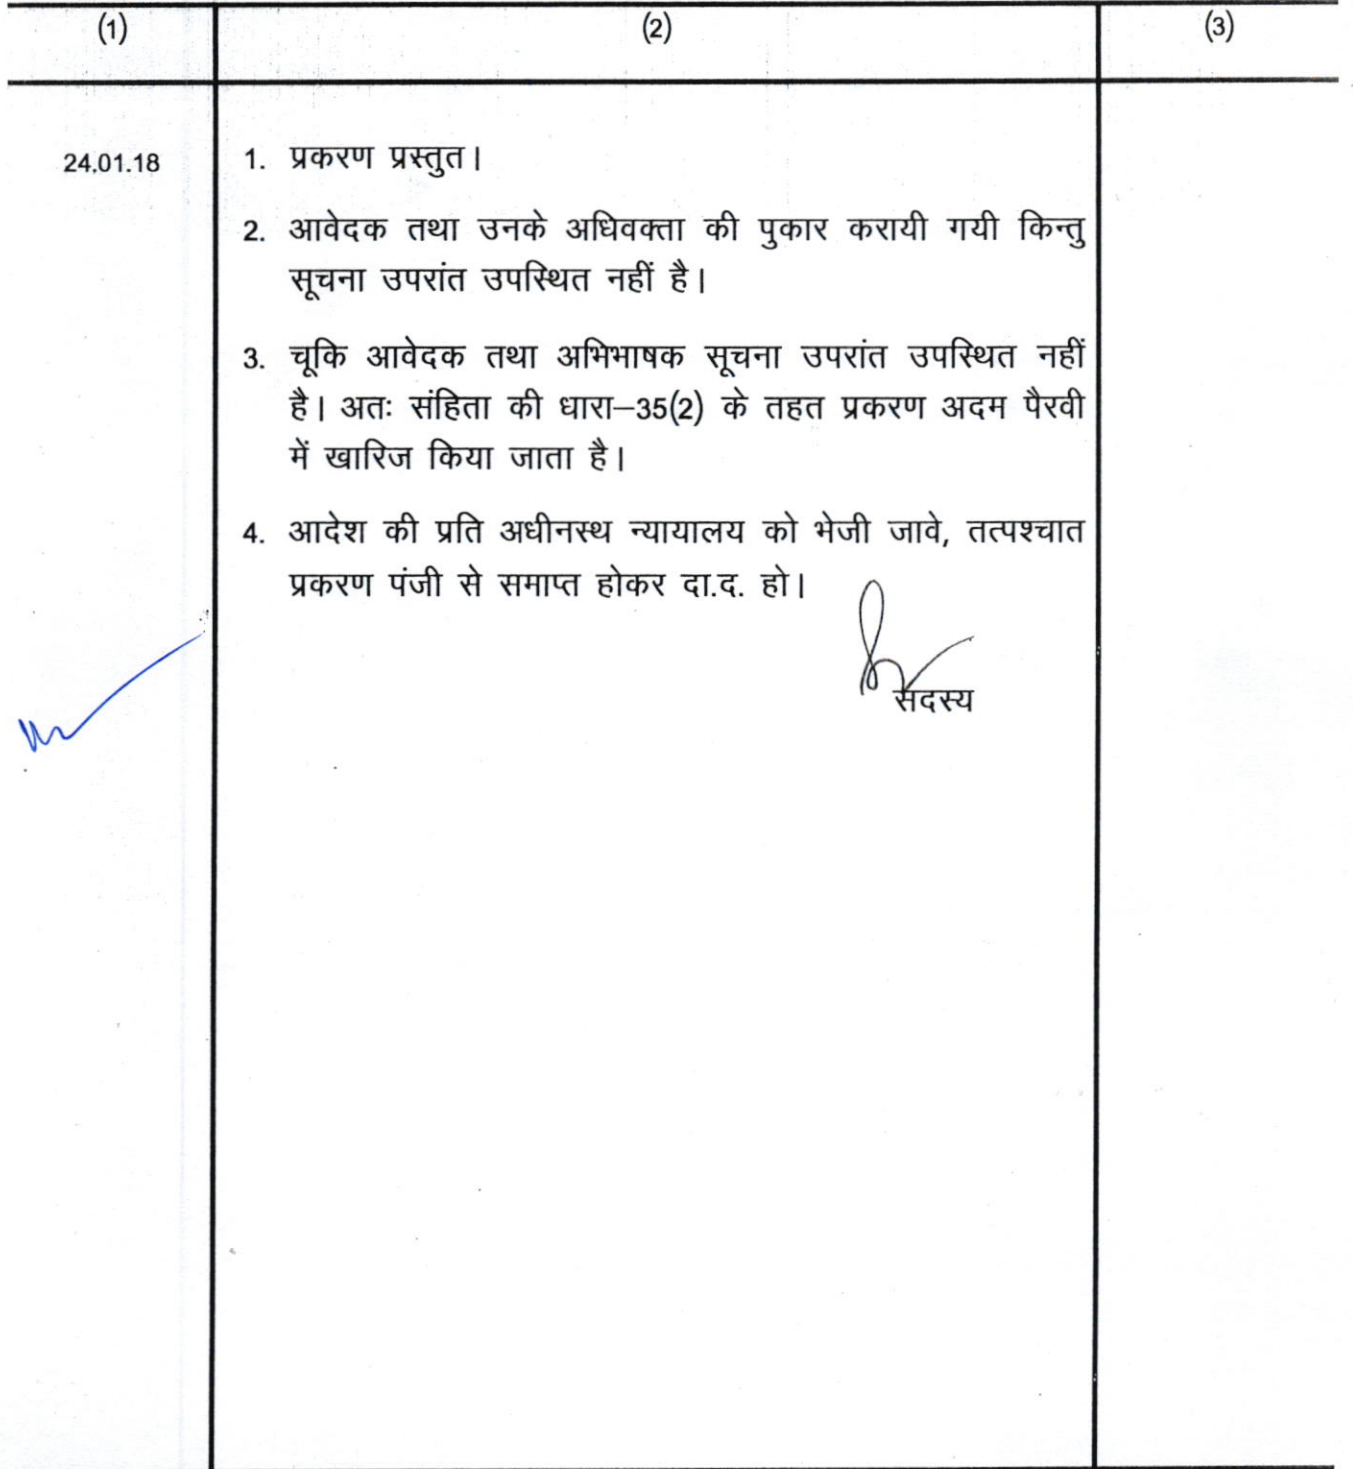 (1) (2) (3)
24.01.18 1. प्रकरण प्रस्तुत।
2. आवेदक तथा उनके अधिवक्ता की पुकार करायी गयी किन्तु
सूचना उपरांत उपस्थित नहीं है।
3. चूकि आवेदक तथा अभिभाषक सूचना उपरांत उपस्थित नहीं
है। अतः संहिता की धारा–35(2) के तहत प्रकरण अदम पैरवी
में खारिज किया जाता है।
4. आदेश की प्रति अधीनस्थ न्यायालय को भेजी जावे, तत्पश्चात
प्रकरण पंजी से समाप्त होकर दा.द. हो।
सदस्य